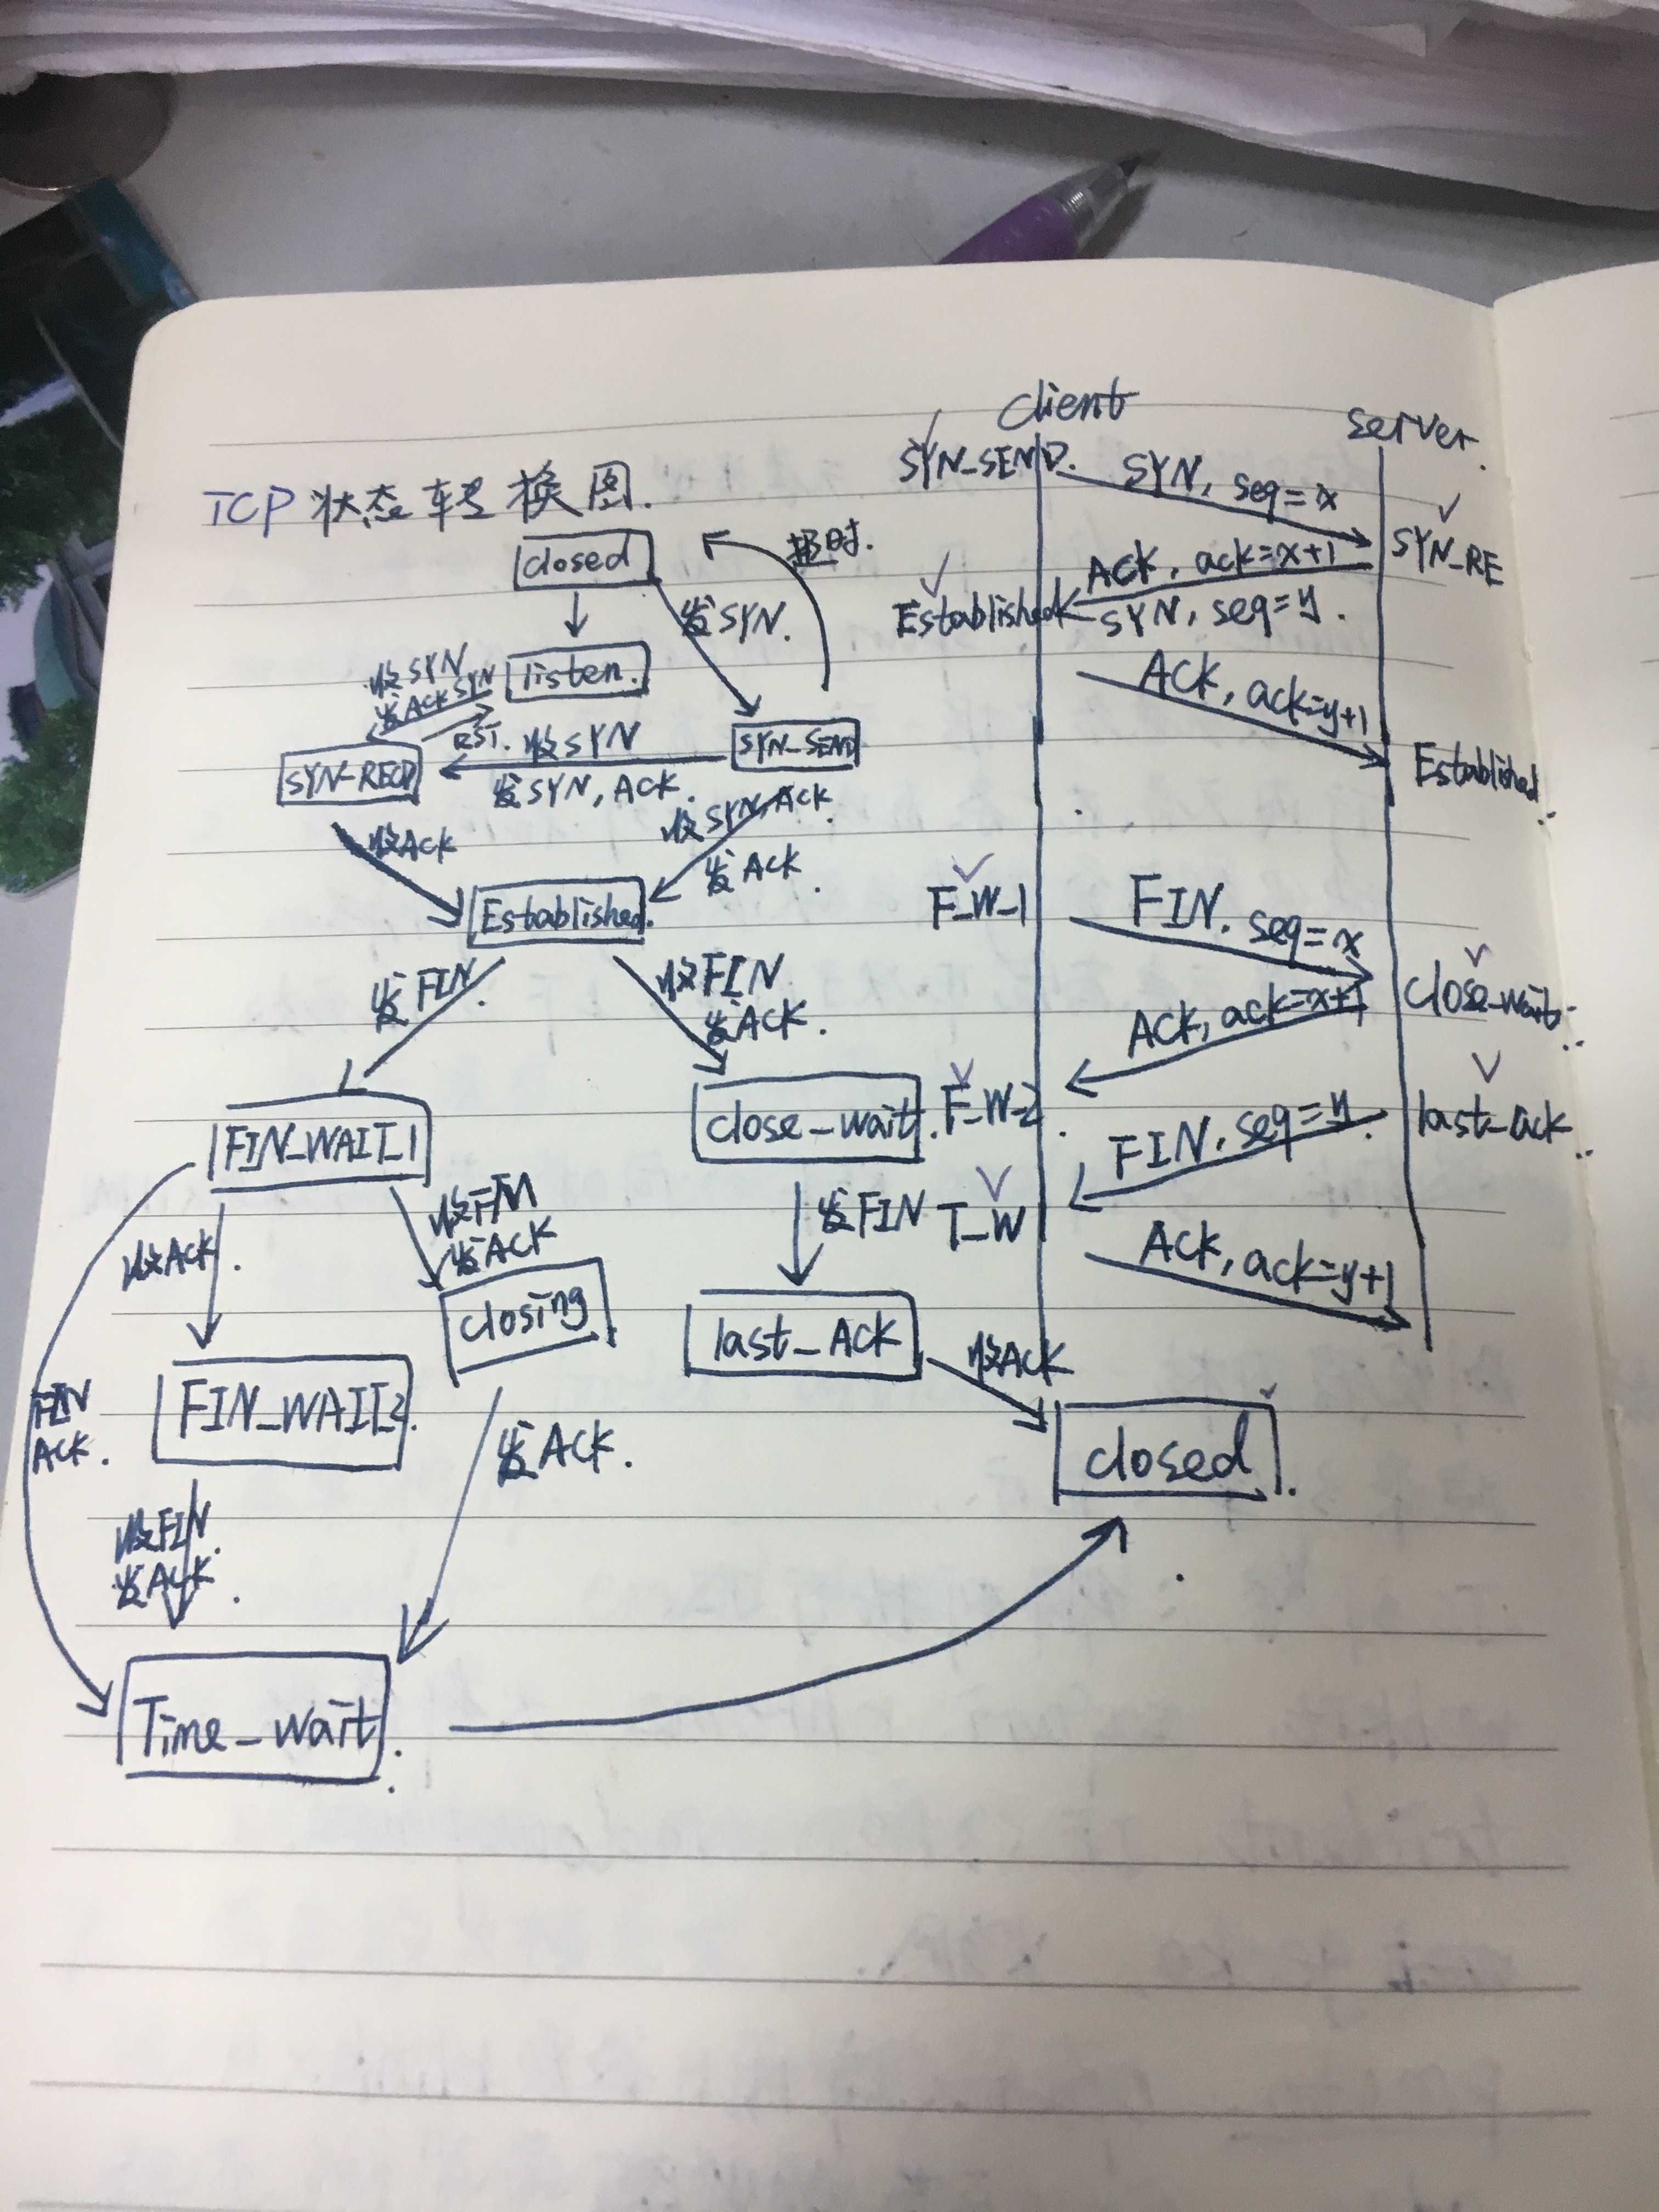 TCP 状态转换图.
closed
超时.
发SYN.
listen.
收SYN
发ACK SYN
RST.
SYN_SEND
收SYN
发SYN, ACK.
SYN-RECD
收SYN, ACK.
发ACK.
收ACK
Established.
发FIN.
收FIN
发ACK.
FIN_WAIT_1
close_wait.
收ACK.
收FIN
发ACK
发FIN
closing
last_ACK
收ACK
FIN
ACK.
FIN_WAIT_2.
发ACK.
closed.
收FIN.
发ACK.
Time_wait.
client
server.
SYN_SEND.
SYN, seq=x
SYN_RE
ACK, ack=x+1
Established
SYN, seq=y.
ACK, ack=y+1
Established.
F_W_1
FIN. seq=x
close_wait.
ACK, ack=x+1
F_W_2.
last_ack
FIN, seq=y.
T_W
ACK, ack=y+1